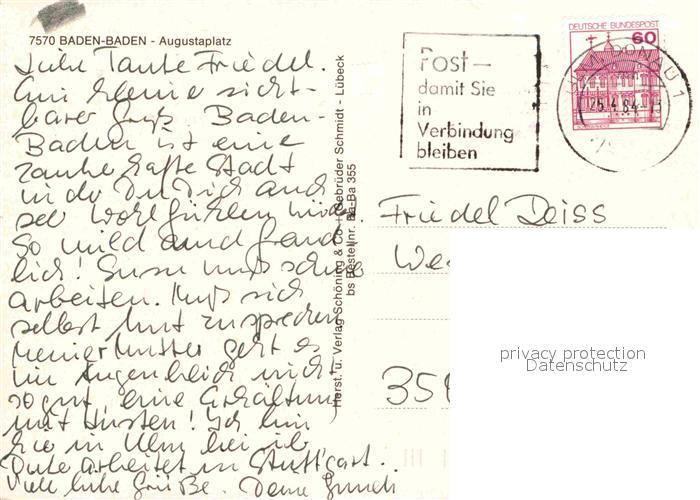 7570 BADEN-BADEN - Augustaplatz
Liebe Tante Friedel.
Ein kleiner sicht-
barer Gruß Baden-
Baden ist eine
zauberhafte Stadt
in der Du Dich auch
sehr wohlfühlen würdest.
So mild und freund
lich! Susu muß schwer
arbeiten. Muß sich
selbst Mut zusprechen
Meiner Mutter geht es
im Augenblick nicht
so gut, eine Erkältung
mit Husten! Ich bin
hier in Ulm bei ihr
Dute arbeitet in Stuttgart.
Viele liebe Grüße. Deine
Horst. u. Verlag Schöning & Co + Gebrüder Schmidt - Lübeck
bs Bestellnr. Ba-Ba 355
Post –
damit Sie
in
Verbindung
bleiben
DEUTSCHE BUNDESPOST
60
ULM, DONAU 1
25.4.84
Friedel Deiss
We
35
privacy protection
Datenschutz